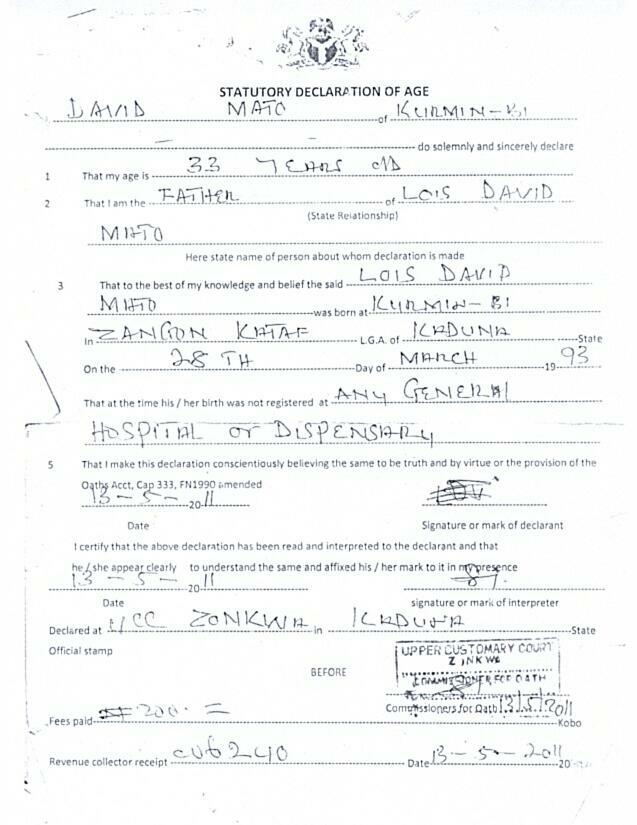 STATUTORY DECLARATION OF AGE
DAVID MATO of KURMIN-BI
do solemnly and sincerely declare
1 That my age is 33 YEARS old
2 That I am the FATHER of LOIS DAVID
(State Relationship)
MATO
Here state name of person about whom declaration is made
3 That to the best of my knowledge and belief the said LOIS DAVID
MATO was born at KURMIN-BI
In ZANGON KATAF L.G.A. of KADUNA State
On the 28TH Day of MARCH 1993
That at the time his / her birth was not registered at ANY GENERAL
HOSPITAL or DISPENSARY
5 That I make this declaration conscientiously believing the same to be truth and by virtue or the provision of the
Oaths Acct, Cap 333, FN1990 amended
13-5-2011
Date Signature or mark of declarant
I certify that the above declaration has been read and interpreted to the declarant and that
he / she appear clearly to understand the same and affixed his / her mark to it in my presence
13-5-2011
Date signature or mark of interpreter
Declared at UCC ZONKWA in KADUNA State
Official stamp UPPER CUSTOMARY COURT
ZONKWA
BEFORE COMMISSIONER FOR OATH
Commissioners for Oath 13/5/2011
Fees paid 200 = Kobo
Revenue collector receipt Date 13-5-2011 20